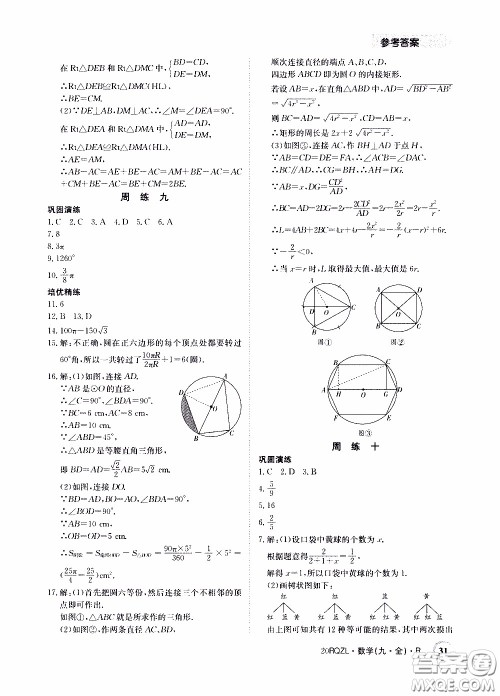 参考答案
在 Rt△DEB 和 Rt△DMC 中,{BD=CD, DE=DM,
∴Rt△DEB≌Rt△DMC(HL).
∴BE=CM.
(2)∵DE⊥AB,DM⊥AC,∴∠M=∠DEA=90°.
在 Rt△DEA 和 Rt△DMA 中,{AD=AD, DE=DM,
∴Rt△DEA≌Rt△DMA(HL).
∴AE=AM.
∴AB-AC=AE+BE-AC=AM+BE-AC=AC+CM+BE-AC=2BE.
周 练 九
巩固演练
1.C 2.C 3.A 4.D 5.C 6.A
7.8
8.3π
9.1260°
10.3/8π
培优精练
11.6
12.B 13.D
14.100π-150√3
15.解:不正确,圆在正六边形的每个顶点处都要转过
60°角,所以一共转过了10πR/2πR+1=6(圈).
16.解:(1)如图,连接 AD.
∵AB 是⊙O 的直径,
∴∠C=90°,∠BDA=90°.
∵BC=6 cm,AC=8 cm,
∴AB=10 cm.
∵∠ABD=45°,
∴△ABD 是等腰直角三角形.
即 BD=AD=√2/2AB=5√2 cm.
(2)如图,连接 DO.
∵BD=AD,∠BDA=90°,
∴∠BOD=90°.
∵AB=10 cm,
∴OB=OD=5 cm.
∴S阴影=S扇形BOD-S△BOD=90π×5²/360-1/2×5²=
(25π/4-25/2)cm².
17.解:(1)首先把圆六等份,然后把三个不相邻的顶
点即可作出.
如图①,△ABC 就是所求作的三角形.
(2)如图②,作两条直径 AC,BD,
顺次连接直径的端点 A,B,C,D,
四边形 ABCD 即为圆 O 的内接矩形.
若设 AB=x,在直角△ABD 中,AD=√BD²-AB²
=√4r²-x²,
则 BC=AD=√4r²-x²,
∴矩形的周长是 2x+2√4r²-x².
(3)如图③,作 BH⊥AD 于点 H.
∵AB=CD=DE=FA,∴∠ADC=∠DAF.
∴BC∥AD∥EF.
∵AB=x,DG=CD²/AD,
∴BC=AD-2DG=2r-2CD²/AD=2r-2x²/2r=2r-x²/r.
∴L=4AB+2BC=4x+4r-2x²/r=-2/r x²+4x+4r.
∵-2/r<0,
∴当 x=r时,L 取得最大值,最大值是 6r.
A
B
C
D
O
图①
图②
图③
周 练 十
巩固演练
1.C 2.D 3.B
4.5/9
5.16
6.2/5
7.解:(1)设口袋中黄球的个数为 x.
根据题意得2/(2+1+x)=1/2.
解得 x=1,所以口袋中黄球的个数为 1.
(2)画树状图如下:
红 红 蓝 黄
由上图可知共有 12 种等可能的结果,其中两次摸出
20RQZL·数学(九·全)·R 31